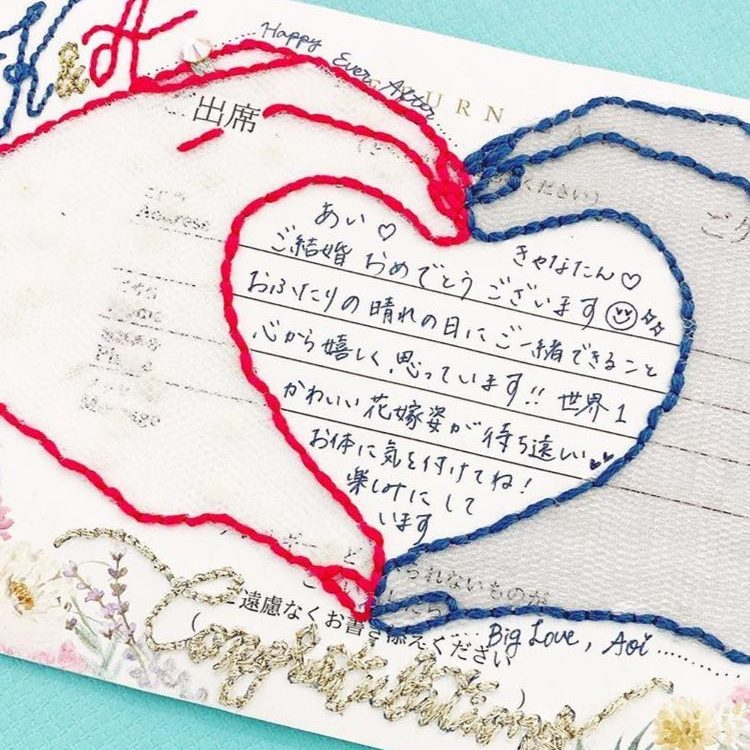 K & H
Happy Ever After
URN
出席
ください)
Address
あい♡
きゃなたん♡
ご結婚おめでとうございます
おふたりの晴れの日にご一緒できること
心から嬉しく思っています!! 世界1
かわいい花嫁姿が待ち遠しい
お体に気を付けてね!
楽しみにして
います
Message
られないものが
ご遠慮なくお書き添えください
( )
Big Love, Aoi
Congratulations